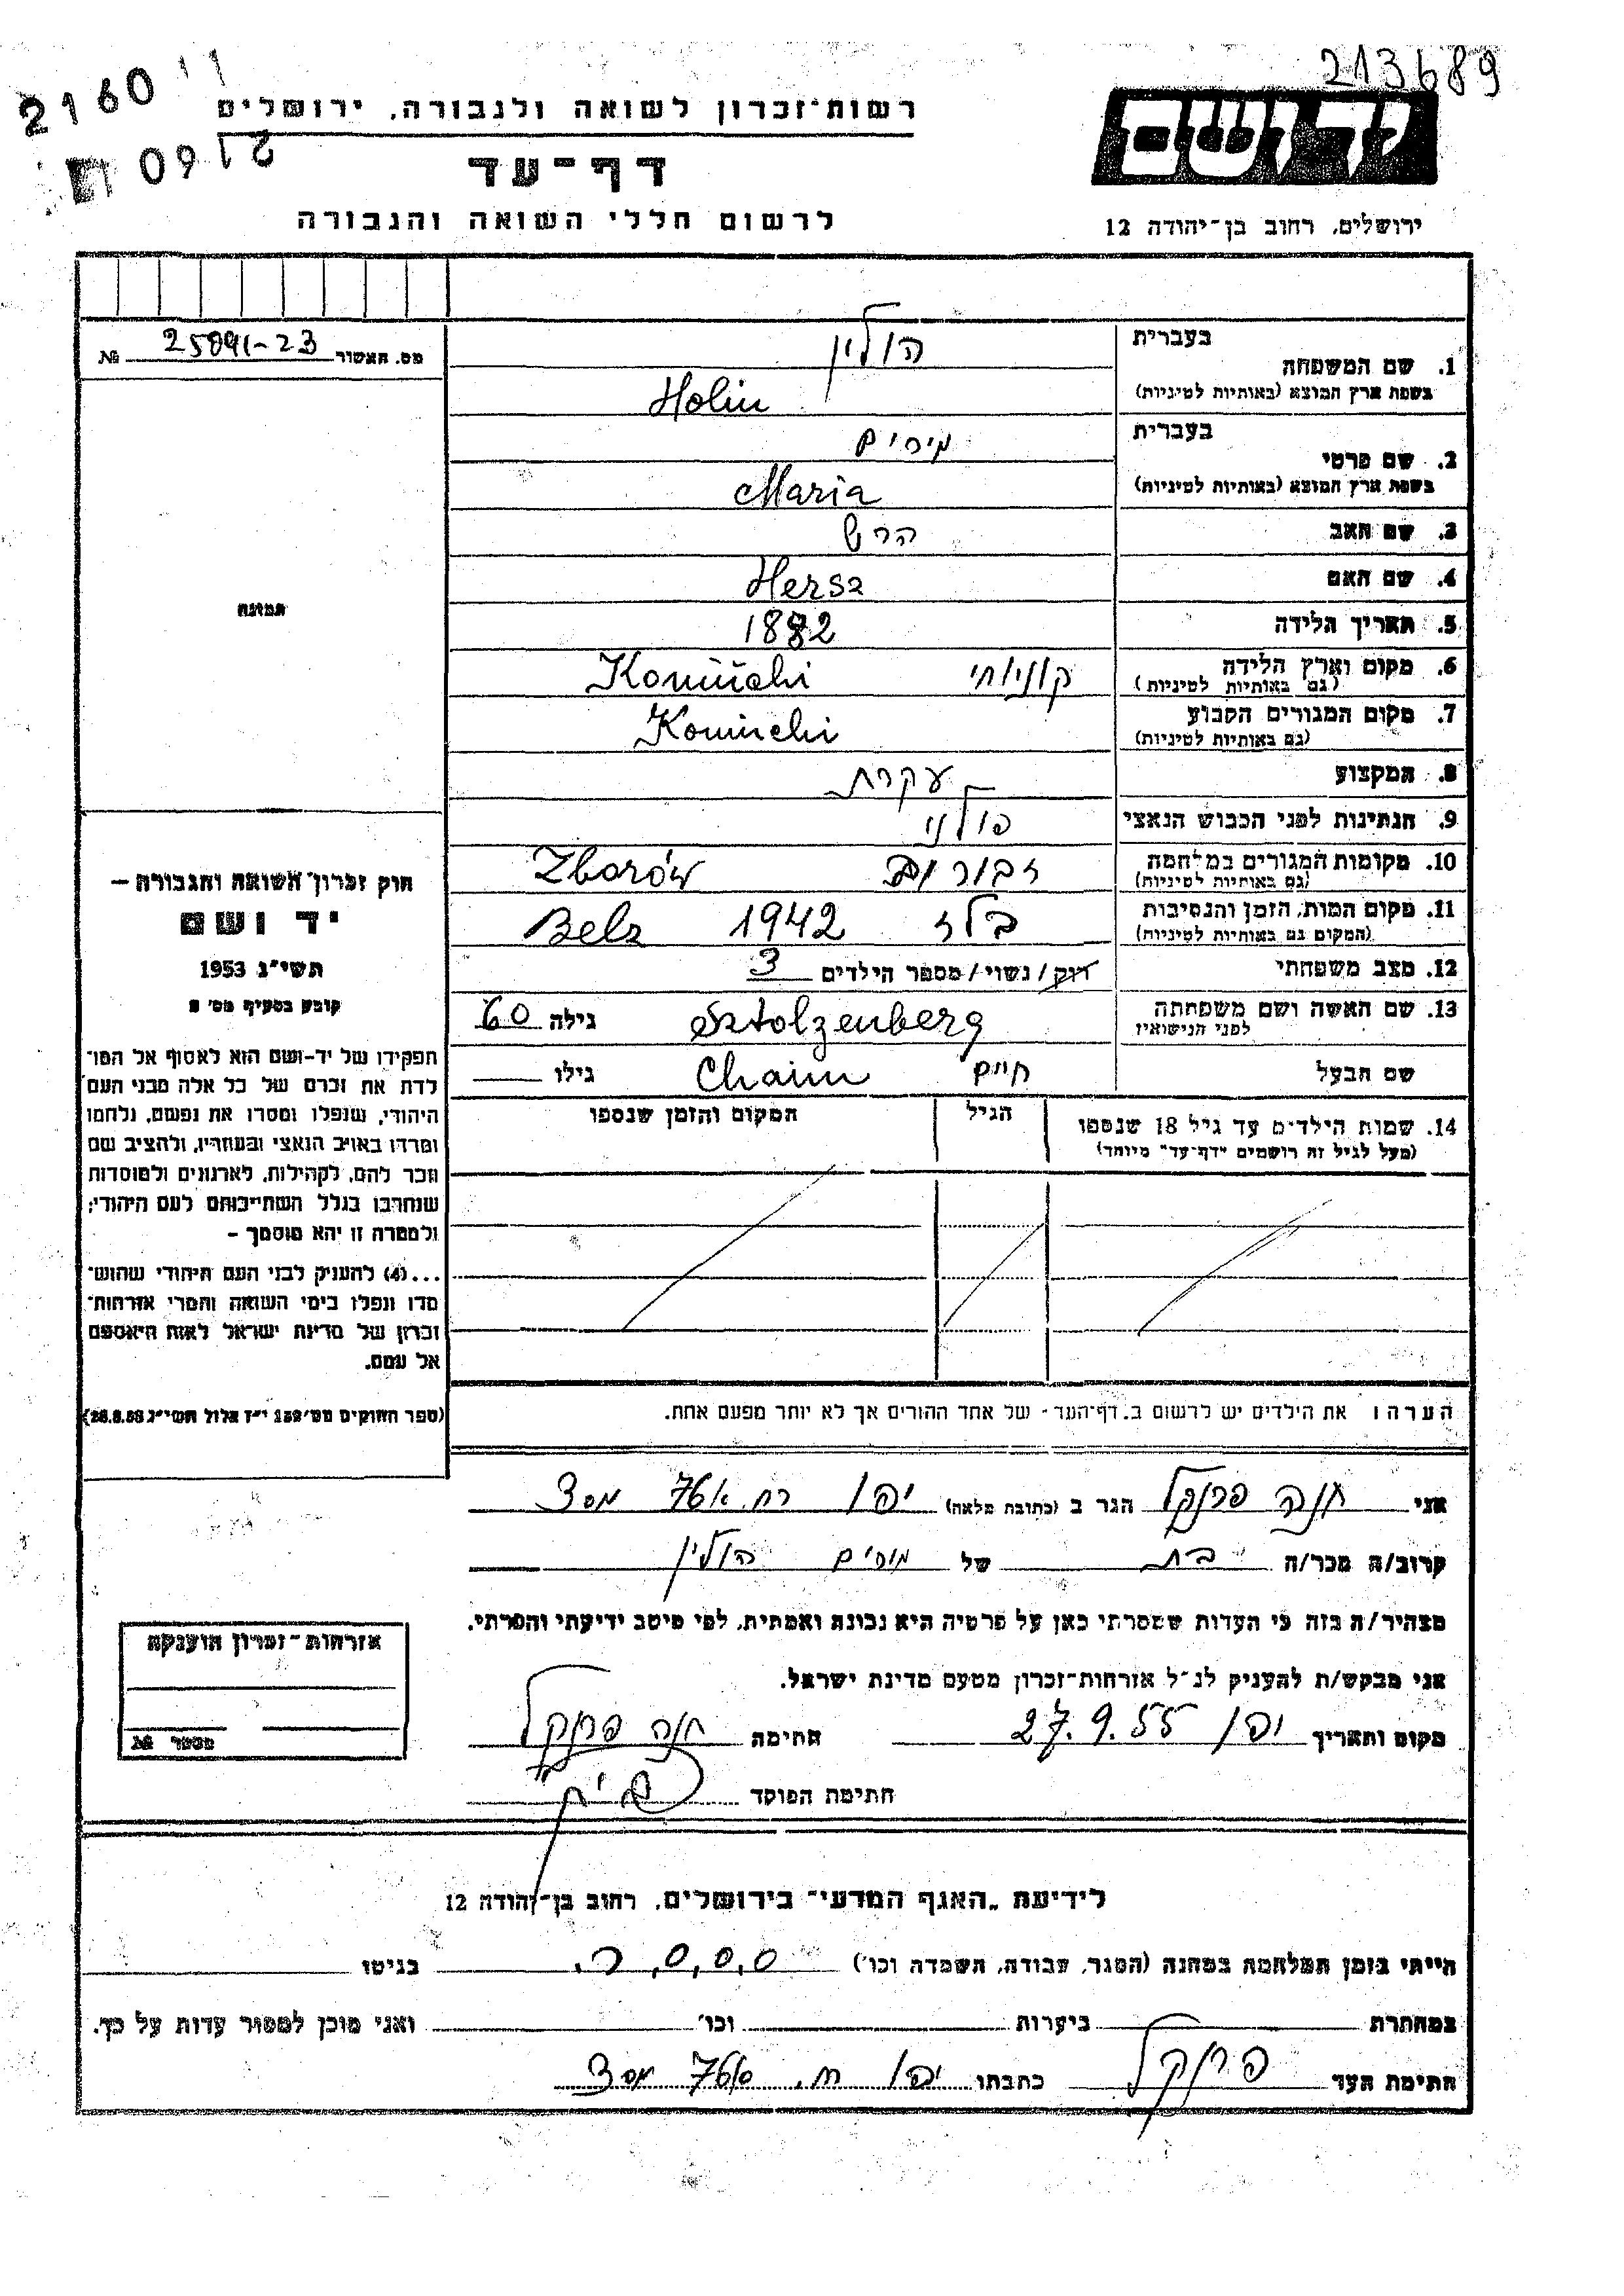 213689
2160
2160
רשות־זכרון לשואה ולגבורה, ירושלים
יד ושם
דף־עד
לרשום חללי השואה והגבורה
ירושלים, רחוב בן־יהודה 12
מס. האשור № 25091-23
1. שם המשפחה
בעברית הולין
בשפת ארץ המוצא (באותיות לטיניות) Holin
2. שם פרטי
בעברית מירים
בשפת ארץ המוצא (באותיות לטיניות) Maria
3. שם האב הרש
4. שם האם Hersz
5. תאריך הלידה 1882
6. מקום וארץ הלידה קוניוחי Koniuchi
(גם באותיות לטיניות)
7. מקום המגורים הקבוע Koniuchi
(גם באותיות לטיניות)
8. המקצוע עקרת
9. הנתינות לפני הכבוש הנאצי פולני
10. מקומות המגורים במלחמה Zborów
(גם באותיות לטיניות)
11. מקום המות, הזמן והנסיבות בלז 1942 Belz
(המקום גם באותיות לטיניות)
12. מצב משפחתי רוק/נשוי/מספר הילדים 3
13. שם האשה ושם משפחתה Sztolzenberg גילה 60
לפני הנישואין
שם הבעל חיים Chaim גילו
14. שמות הילדים עד גיל 18 שנספו הגיל המקום והזמן שנספו
(מעל לגיל זה רושמים "דף־עד" מיוחד)
הערה: את הילדים יש לרשום ב"דף־העד" של אחד ההורים אך לא יותר מפעם אחת.
התמונה
חוק זכרון השואה והגבורה —
יד ושם
תשי"ג 1953
קובע בסעיף מס'
תפקידו של יד־ושם הוא לאסוף אל המו־
לדת את זכרם של כל אלה מבני העם
היהודי, שנפלו ומסרו את נפשם, נלחמו
ומרדו באויב הנאצי ובעוזריו, ולהציב שם
וזכר להם, לקהילות, לארגונים ולמוסדות
שנחרבו בגלל השתייכותם לעם היהודי;
ולמטרה זו יהא מוסמך —
...(4) להעניק לבני העם היהודי שהוש־
מדו ונפלו בימי השואה והמרי אזרחות־
זכרון של מדינת ישראל לאות היאספם
אל עמם.
(ספר החוקים מס' 132 י"ז אלול תשי"ג 28.8.53)
אני חנה פרנקל הגר ב (כתובת מלאה) יפו רח
קרוב/ה מכר/ה בת של מירים הולין
מצהיר/ה בזה כי העדות שמסרתי כאן על פרטיה היא נכונה ואמתית, לפי מיטב ידיעתי והכרתי.
אני מבקש/ת להעניק לנ"ל אזרחות־זכרון מטעם מדינת ישראל.
מקום ותאריך יפו 27.9.55 חתימה חנה פרנקל
חתימת הפוקד
אזרחות־זכרון הוענקה
מספר №
לידיעת "האגף המדעי" בירושלים, רחוב בן־יהודה 12
הייתי בזמן המלחמה במחנה (הסגר, עבודה, השמדה וכו') בגיטו
במחתרת ביערות וכו' ואני מוכן למסור עדות על כך.
חתימת העד פרנקל כתבתו יפו